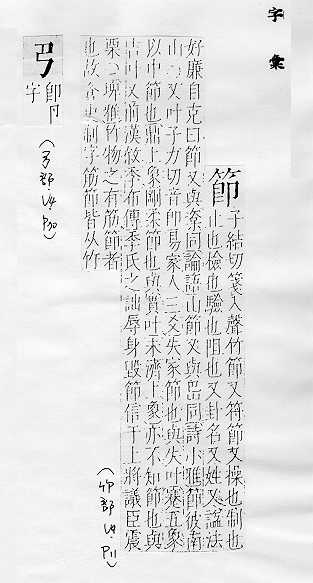 字彙
節
子結切箋入聲竹節又符節又操也制也
止也檢也驗也阻也又卦名又姓又謚法
好廉自克曰節又與楶同論語山節又與岊同詩小雅節彼南
山○又叶子力切音即易家人三爻失家節也與失叶蹇五象
以中節也鼎上象剛柔節也與實叶未濟上象亦不知節也與
吉叶又前漢敘季布傳季氏之詘辱身毀節信于上將議臣震
栗○埤雅竹物之有筋節者
也故蒼史制字筋節皆从竹
(竹部 P11)
卽卩
字
(弓部 P30)